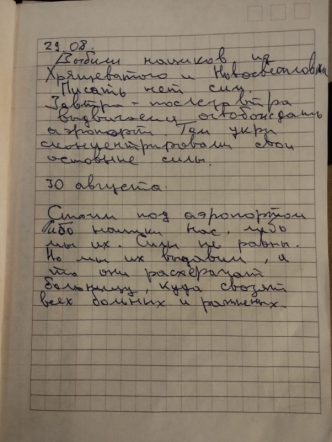 29.08.
Выбили нациков из
Хрящеватого и Новосветловки
Писать нет сил.
Завтра - послезавтра
выдвигаемся освобождать
аэропорт. Там укры
сконцентрировали свои
основные силы.
30 августа.
Стоим под аэропортом
либо нацики нас, либо
мы их. Силы не равны.
Но мы их выдавим, а
то они расхерачат
больницу, куда свозят
всех больных и раненых.